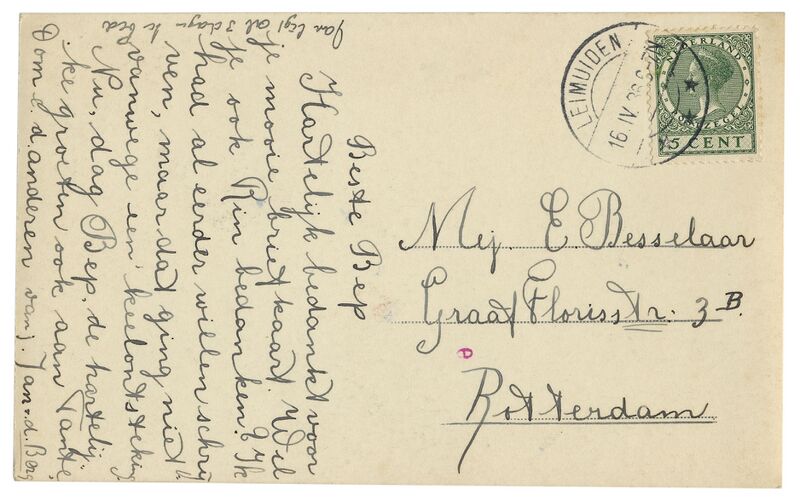 Beste Bep
Hartelijk bedankt voor
je mooie briefkaart. Wil
je ook Rin bedanken? Ik
had al eerder willen schrij
ven, maar dat ging niet
vanwege een keelontsteking
Nu, dag Bep, de hartelij-
ke groeten ook aan Tante
Dom e.d. anderen van J. Jan v.d. Berg
Jan ligt al 3 dagen te bed
LEIMUIDEN
16.IV.36
NEDERLAND
5 CENT
Mej. E. Besselaar
Graaf Florisstr. 3B.
Rotterdam